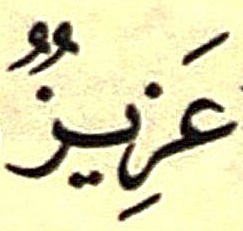 عَزِيزٌ